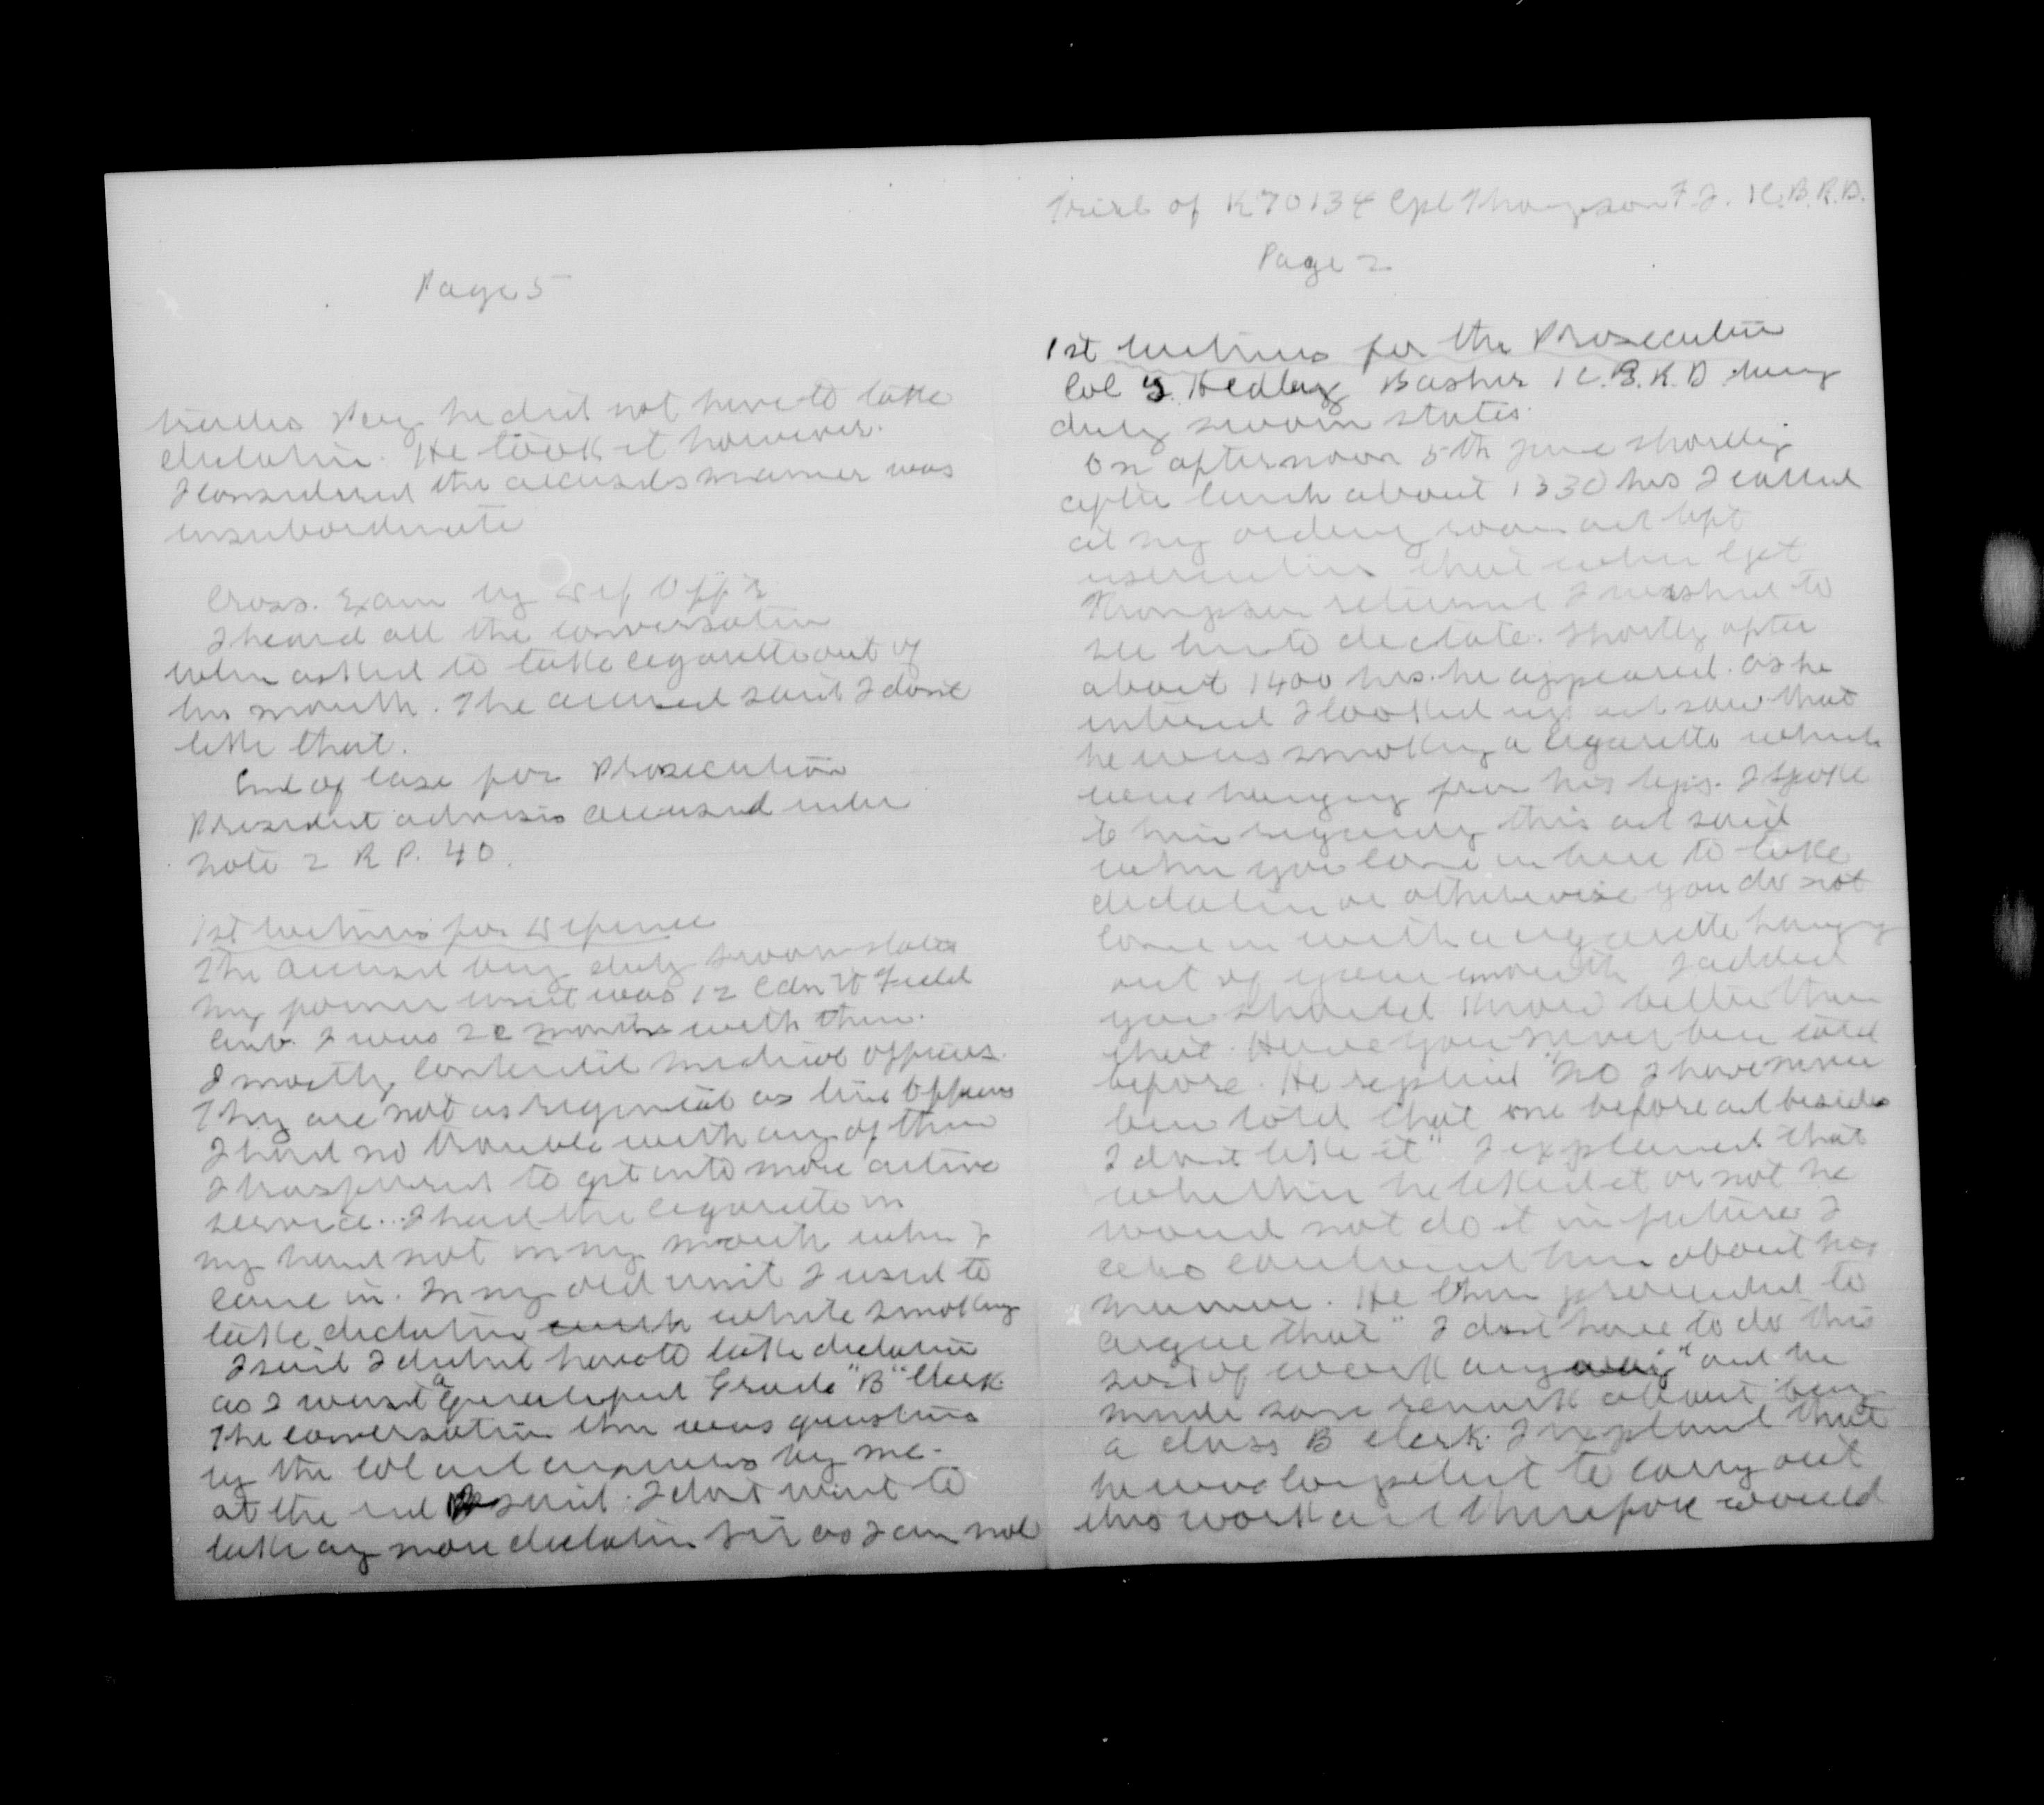 Page 5
he did not have to take
dictation. He took it however.
I considered the accused's manner was
insubordinate
Cross. Exam by Def Off'r
I heard all the conversation
when asked to take cigarette out of
his mouth. The accused said I don't
like that.
End of case for Prosecution
President advises accused under
note 2 R P. 40.
1st witness for Defence
The accused being duly sworn states
My former unit was 12 Cdn Lt Field
Amb. I was 22 months with them.
I mostly contacted medical officers.
They are not as regimental as line officers
I had no trouble with any of them
I transferred to get into more active
service. I had the cigarette in
my hand not in my mouth when I
came in. In my old unit I used to
take dictation while smoking
I said I didn't have to take dictation
as I wasn't a Grade "B" Clerk
The conversation then was questions
by the Col and answers by me.
at the end I said: I don't want to
take any more dictation Sir as I am not
Trial of K70134 Cpl Thompson F J. 1 C.B.R.D.
Page 2
1st witness for the Prosecution
Col Hedley Basher 1 C.B.R.D. being
duly sworn states.
On afternoon 5th June shortly
after lunch about 1330 hrs I called
at my orderly room and left
instruction that when Cpl
Thompson returned I wished to
see him to dictate. Shortly after
about 1400 hrs. he appeared. As he
entered I looked up and saw that
he was smoking a cigarette which
was hanging from his lips. I spoke
to him regarding this and said
when you come in here to take
dictation or otherwise you do not
come in with a cigarette hanging
out of your mouth I added
you should know better than
that. Have you never been told
before. He replied "No I have never
been told that one before and besides
I don't like it" I explained that
whether he liked it or not he
would not do it in future. I
also cautioned him about his
manner. He then proceeded to
argue that "I don't have to do this
sort of work anyway" and he
made some remark about being
a class B clerk. I explained that
he was competent to carry out
this work and therefore would